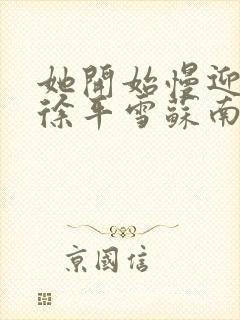 她開始慢迎
徐平雪蘇南
京國信